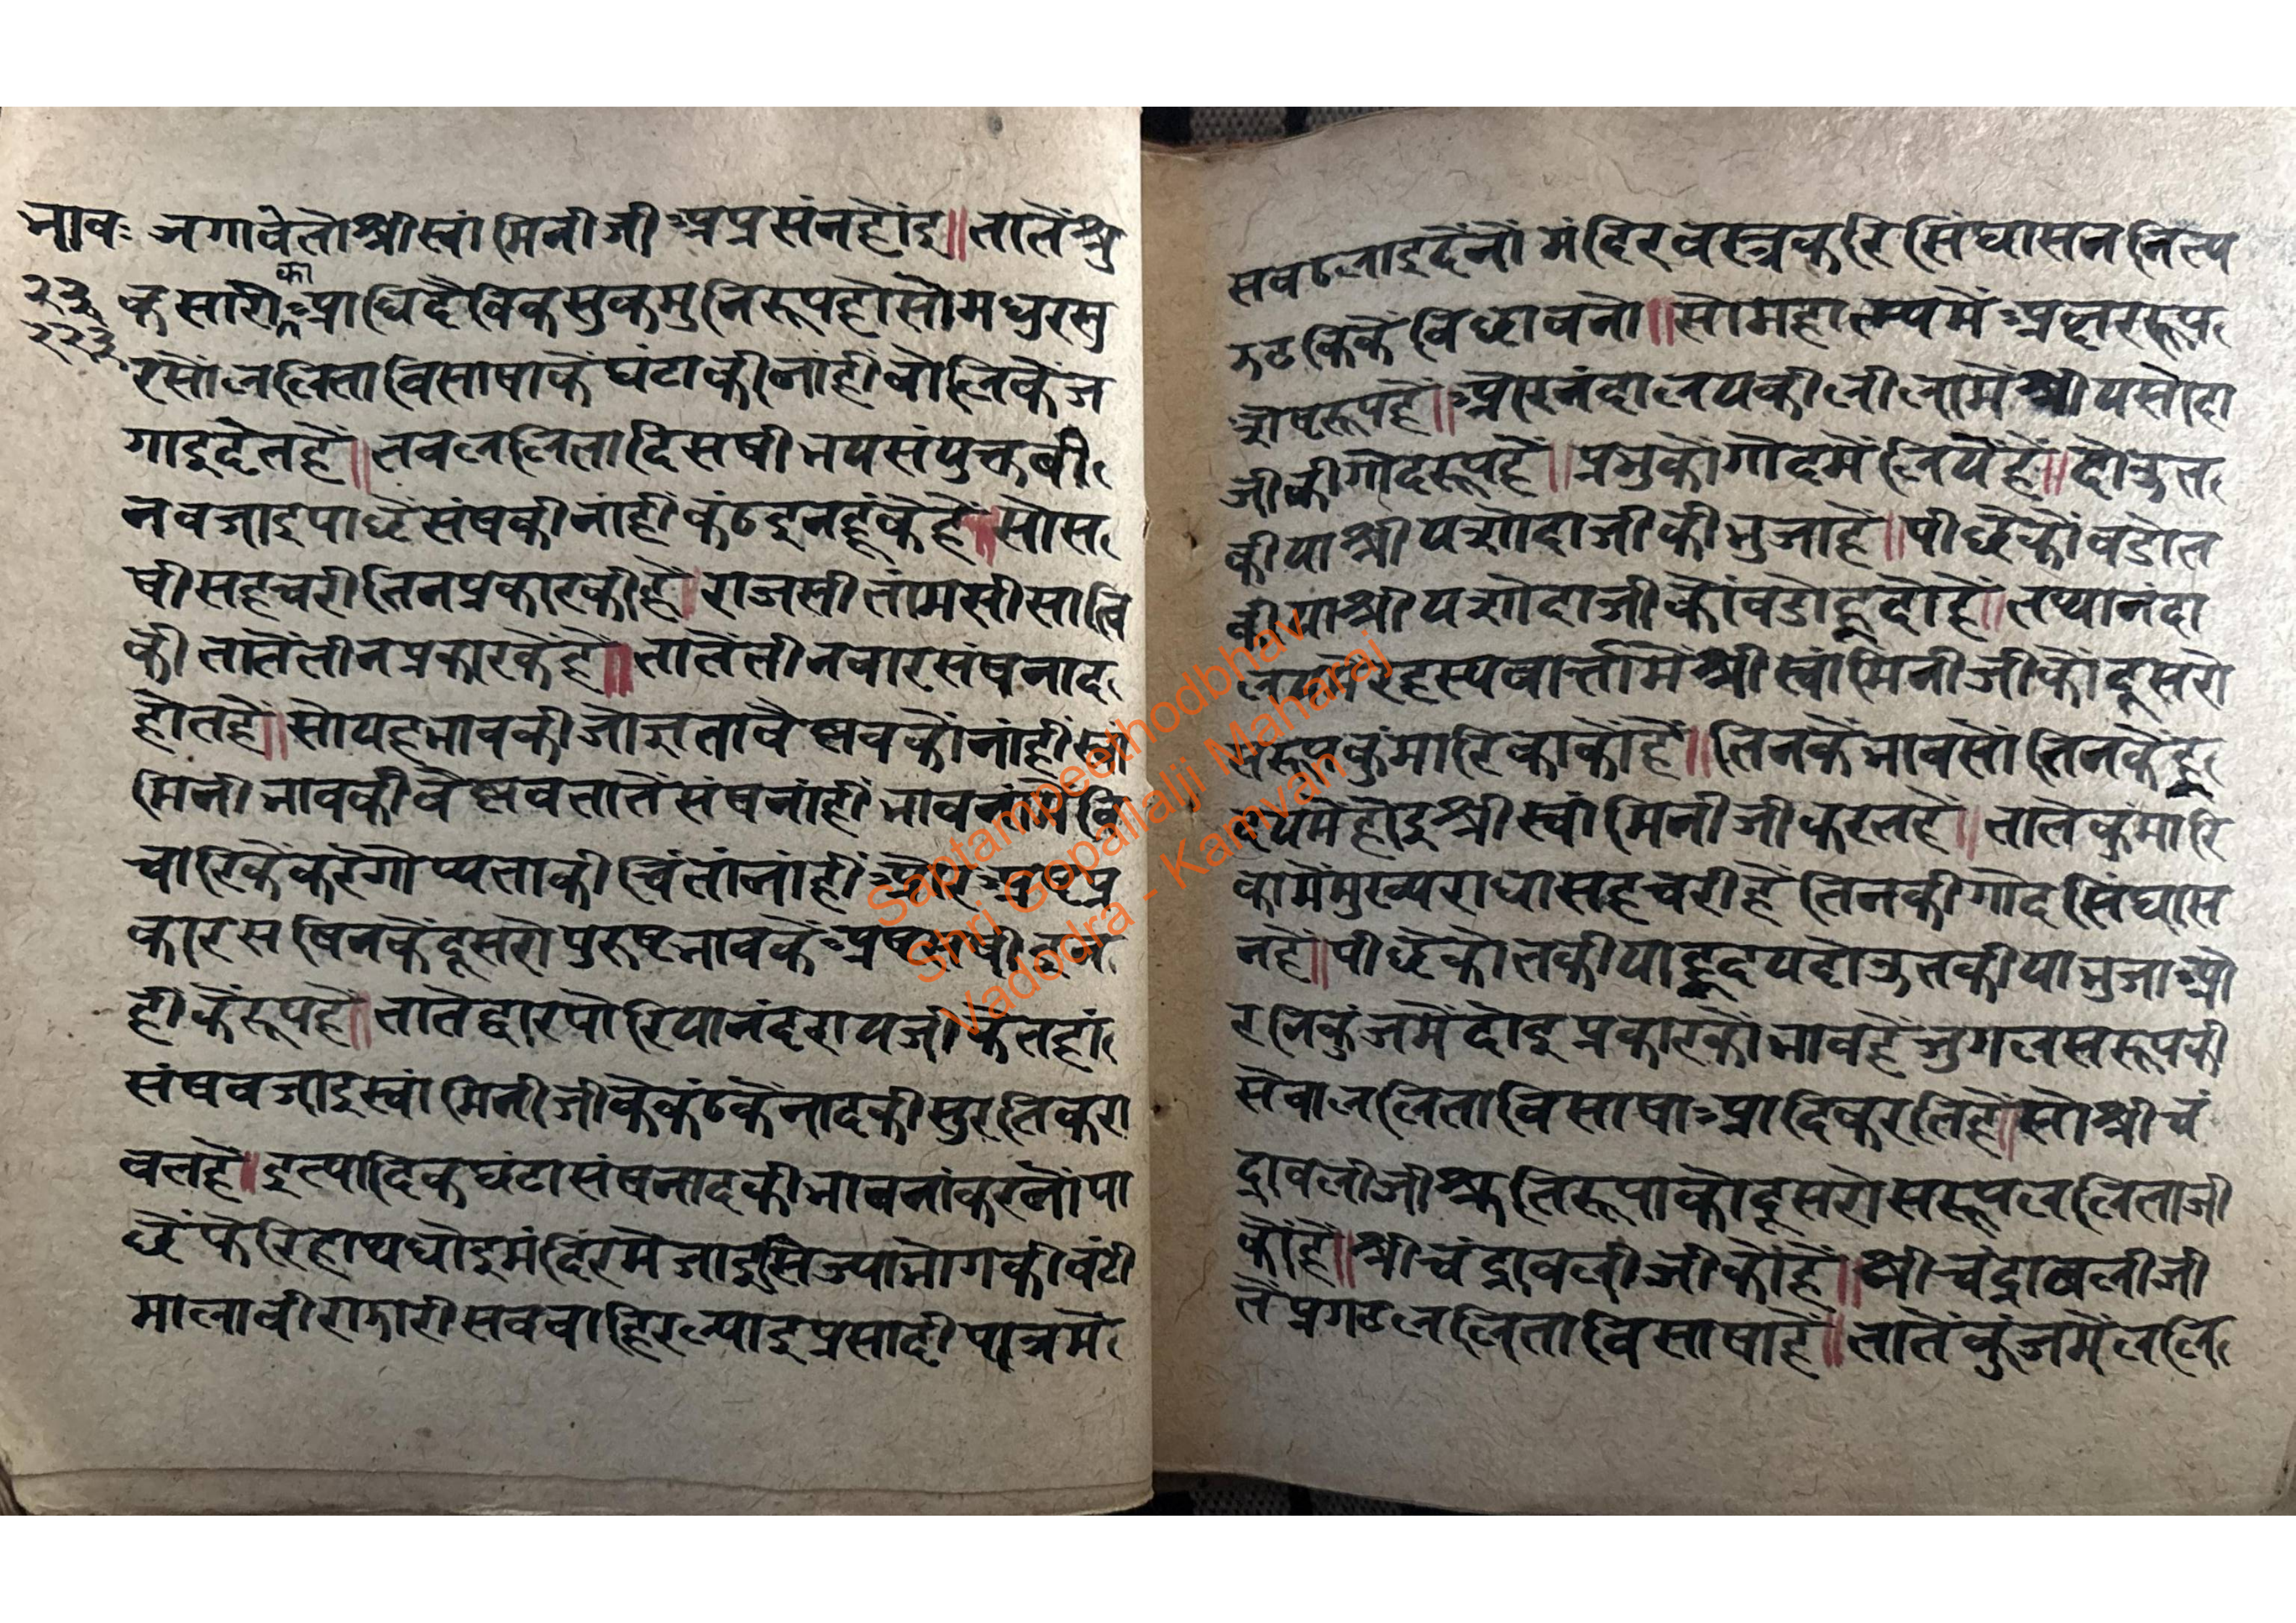 भावः जगावेतो श्रीस्वांमिनीजी अप्रसंनहोंइ॥ तातें श्रु
२३ का
२२३
कसारी आधिदैविक सुकमुनिरूपहोसो मधुरसु
रसों ललिता विसाषाकें घंटाकी नांही बोलिकें ज
गाइदेतहें॥ तब ललितादि सषी भयसंयुक्त बी
नवजाइ पाछें संषकी नांही कंठइनहूंकेहें॥ सो स
षी सहचरी तिनप्रकारकीहें॥ राजसी तांमसी सात्वि
की तातें तीनप्रकारकेंहें॥ तातें तीनवार संषनाद
होतहें॥ सो यह भावकी जो ज्ञता वैष्णवकों नांहीं स्वां
मिनी भावकी वैष्णवतातें संषनांही भावनांमें वि
चारिकें करें गोप्यताकी चिंतांनांहीं और अष्टप्र
कार सषिनकें दूसरो पुरुष भावकें अष्टसषी
ही कें रूपहें॥ तातें द्वारपोरिया नंदरायजीकें तहां
संषवजाइ स्वांमिनीजीकें कंठकें नादकी सुरतिकरा
वतहें॥ इत्यादिक घंटा संषनादकी भावनांकरनों पा
छें फेरि हाथधोइ मंदिरमें जाइ सिज्याभोगकी बंटी
माला वीरा झारी सब बाहिर ल्याइ प्रसादी पात्रमें
सब ठलाइदेंनों मंदिरवस्त्रकरि सिंघासन नित्य
झटकिकें विछावनो॥ सो महात्म्यमें अक्षररूप
शेषरूपहें॥ और नंदालयकी लीलामें श्रीयसोदा
जीकी गोदरूपहें॥ प्रभुकों गोदमें लियेंहें॥ दोऊत
कीया श्रीयशोदाजीकी भुजाहें॥ पीछेंकों बडोत
कीया श्रीयशोदाजीकों बडो हृदोहें॥ तथा नंदा
लयमें रहस्यवार्त्तामें श्रीस्वांमिनीजीकों दूसरो
सरूप कुंमारिकाकोंहें॥ तिनकें भावसों तिनकें हृ
दयमें होइ श्रीस्वांमिनीजी करतहें॥ तातें कुंमारि
कामें मुख्य राधासहचरीहें तिनकी गोद सिंघास
नहें॥ पीछेंको तकीया हृदय दोऊतकीया भुजा औ
र निकुंजमें दोइ प्रकारकों भावहें जुगलसरूपकी
सेवा ललिता विसाषा आदि करतिहें॥ सो श्रीचं
द्रावलीजी श्रुतिरूपाको दूसरो सरूप ललिताजी
कोंहें॥ श्रीचंद्रावलीजीकोंहें॥ श्रीचंद्रावलीजी
तें प्रगट ललिता विसाषाहें॥ तातें कुंजमें ललि
Saptampeethodbhav
Shri Gopallalji Maharaj
Vadodra - Kamvan